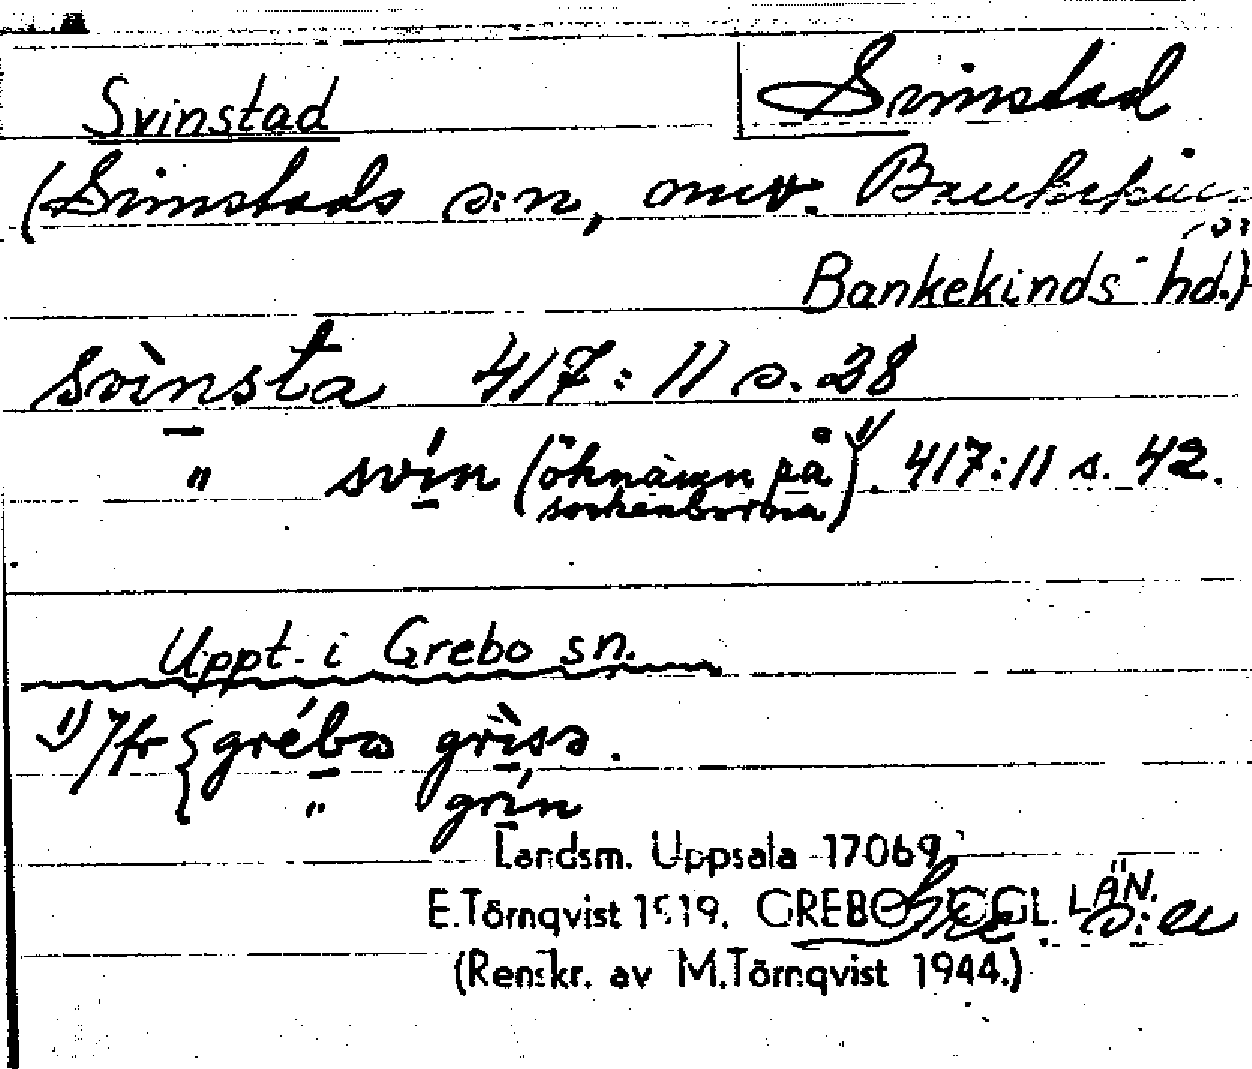 Svinstad Svinstad
(Svinstads s:n,
Bankekinds hd.)
svìnsta 417:11 s. 38
" svín (öknamn på sockenborna)¹⁾. 417:11 s. 42.
Uppt. i Grebo sn.
¹⁾ Jfr { grébo grìsa.
" grín
Landsm. Uppsala 17069
E.Törnqvist 1919. GREBO ÖGL. LÄN.
(Renskr. av M.Törnqvist 1944.)